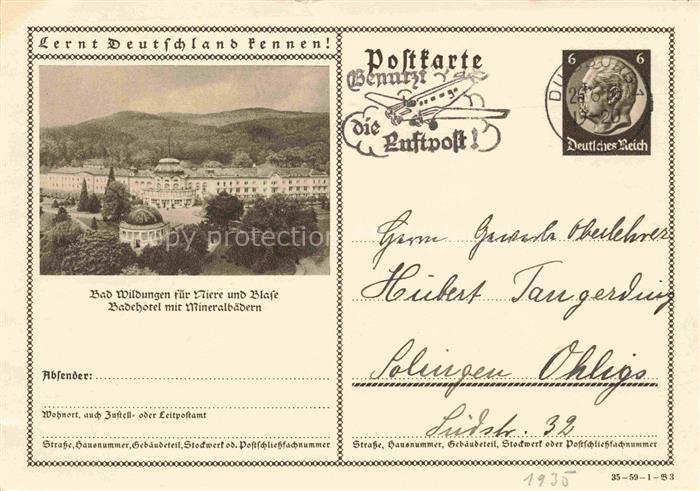 Lernt Deutschland kennen!
Bad Wildungen für Niere und Blase
Badehotel mit Mineralbädern
Absender:
Wohnort, auch Zustell- oder Leitpostamt
Straße, Hausnummer, Gebäudeteil, Stockwerk od. Postschließfachnummer
Postkarte
Benutzt
die
Luftpost!
6 6
Deutsches Reich
Herrn Gewerbe Oberlehrer
Hubert Tangerding
Solingen Ohligs
Südstr. 32
Straße, Hausnummer, Gebäudeteil, Stockwerk oder Postschließfachnummer
1935
35-59-1-B3
copy protection